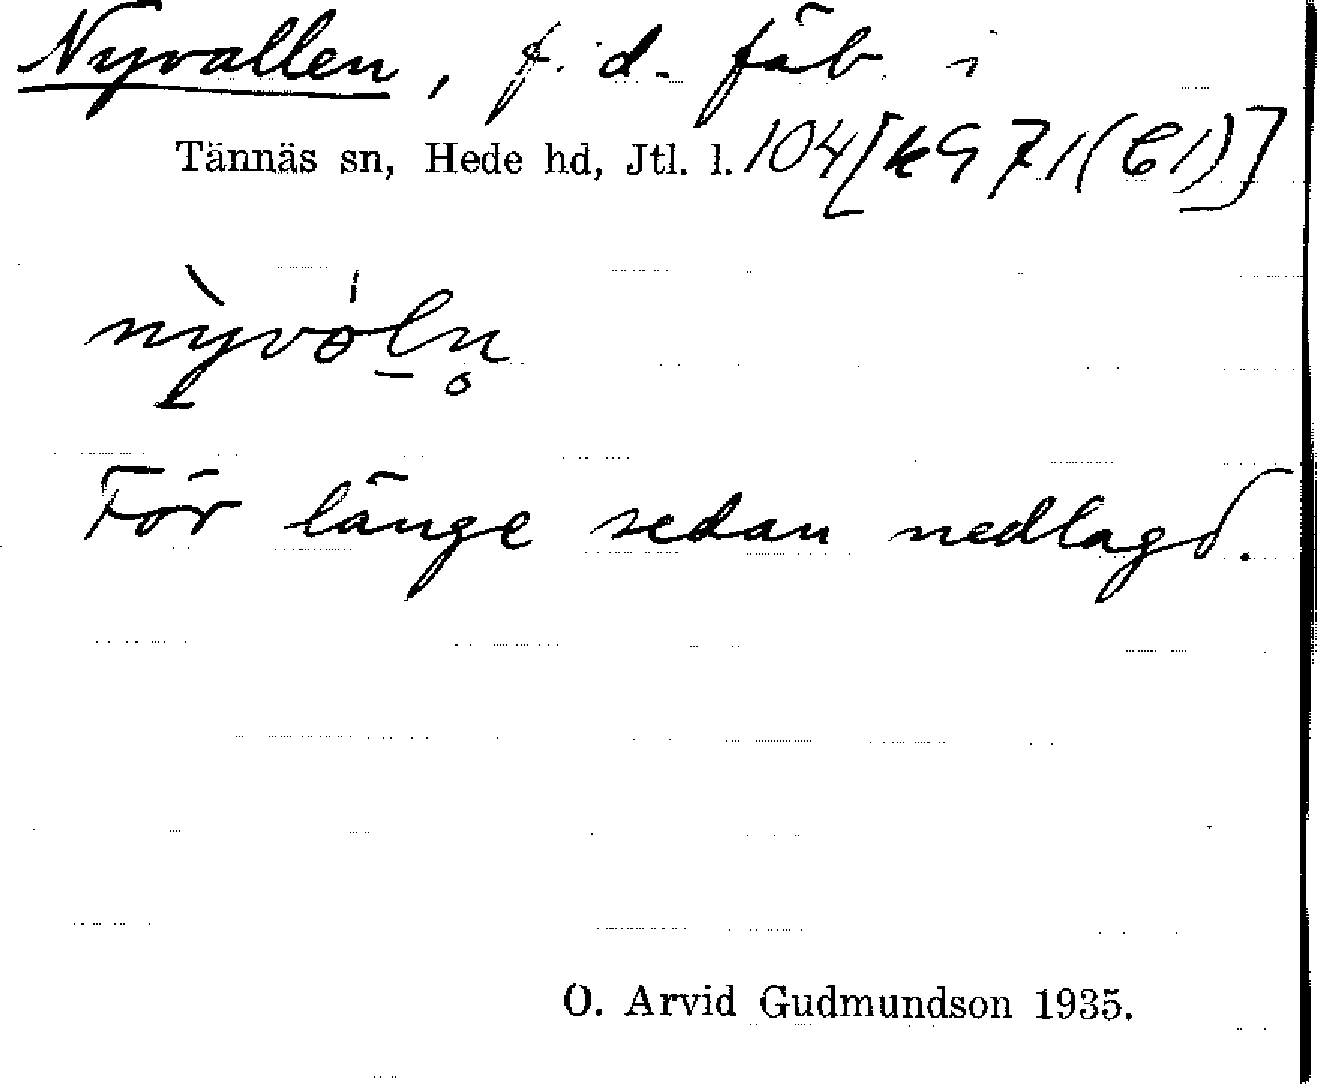 Nyvallen, f. d. fäb i
Tännäs sn, Hede hd, Jtl. l. 104 [k G 71 (C1)]
För länge sedan nedlagd.
O. Arvid Gudmundson 1935.